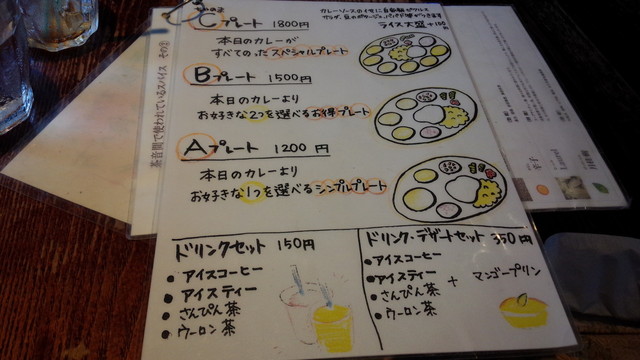 Cプレート 1800円
本日のカレーが
すべてのったスペシャルプレート
ライス大盛 +100円
Bプレート 1500円
本日のカレーより
お好きな2つを選べるお得プレート
Aプレート 1200円
本日のカレーより
お好きな1つを選べるシンプルプレート
ドリンクセット 150円
・アイスコーヒー
・アイスティー
・さんぴん茶
・ウーロン茶
ドリンク・デザートセット 350円
・アイスコーヒー
・アイスティー
・さんぴん茶
・ウーロン茶
+ マンゴープリン
茶音間で使われているスパイス その②